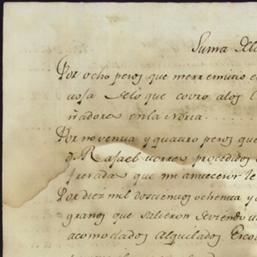 Suma Dela
Por ocho pesos que me remitio e
vosa Delo que covro alos l
ñadores en la Noria
Por noventa y quatro pesos que
D. Rafael torres procedidos
ferrada que mi antecesor le
Por diez mil doscientos ochenta y
granos que salieron deviendo
acomodados Alquilados